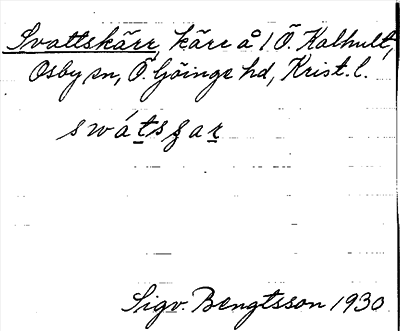 Svattskärr, kärr å 1 Ö. Kalhult,
Osby sn, Ö. Göinge hd, Krist. l.
Sigv. Bengtsson 1930